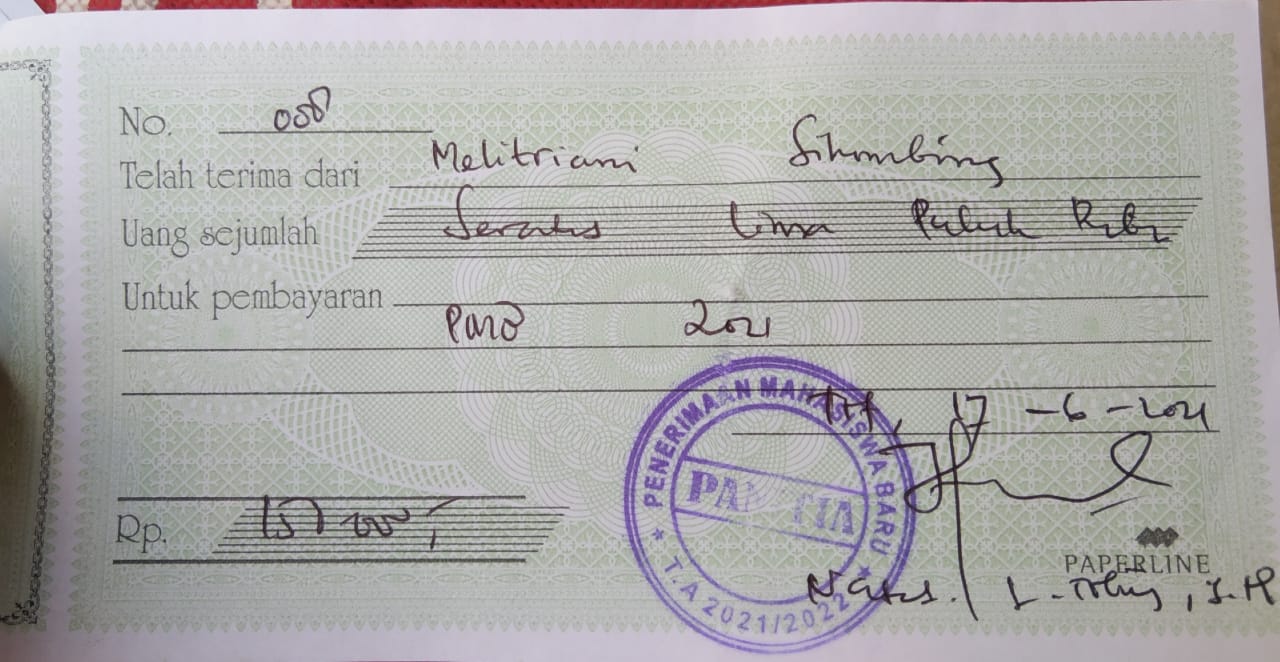 No. 058
Telah terima dari Melitriani Sihombing
Uang sejumlah Seratus lima Puluh Ribu
Untuk pembayaran
2021
17 -6 -2021
PENERIMAAN MAHASISWA BARU
PANITIA
★ T.A 2021/2022 ★
Rp. 150.000,-
PAPERLINE